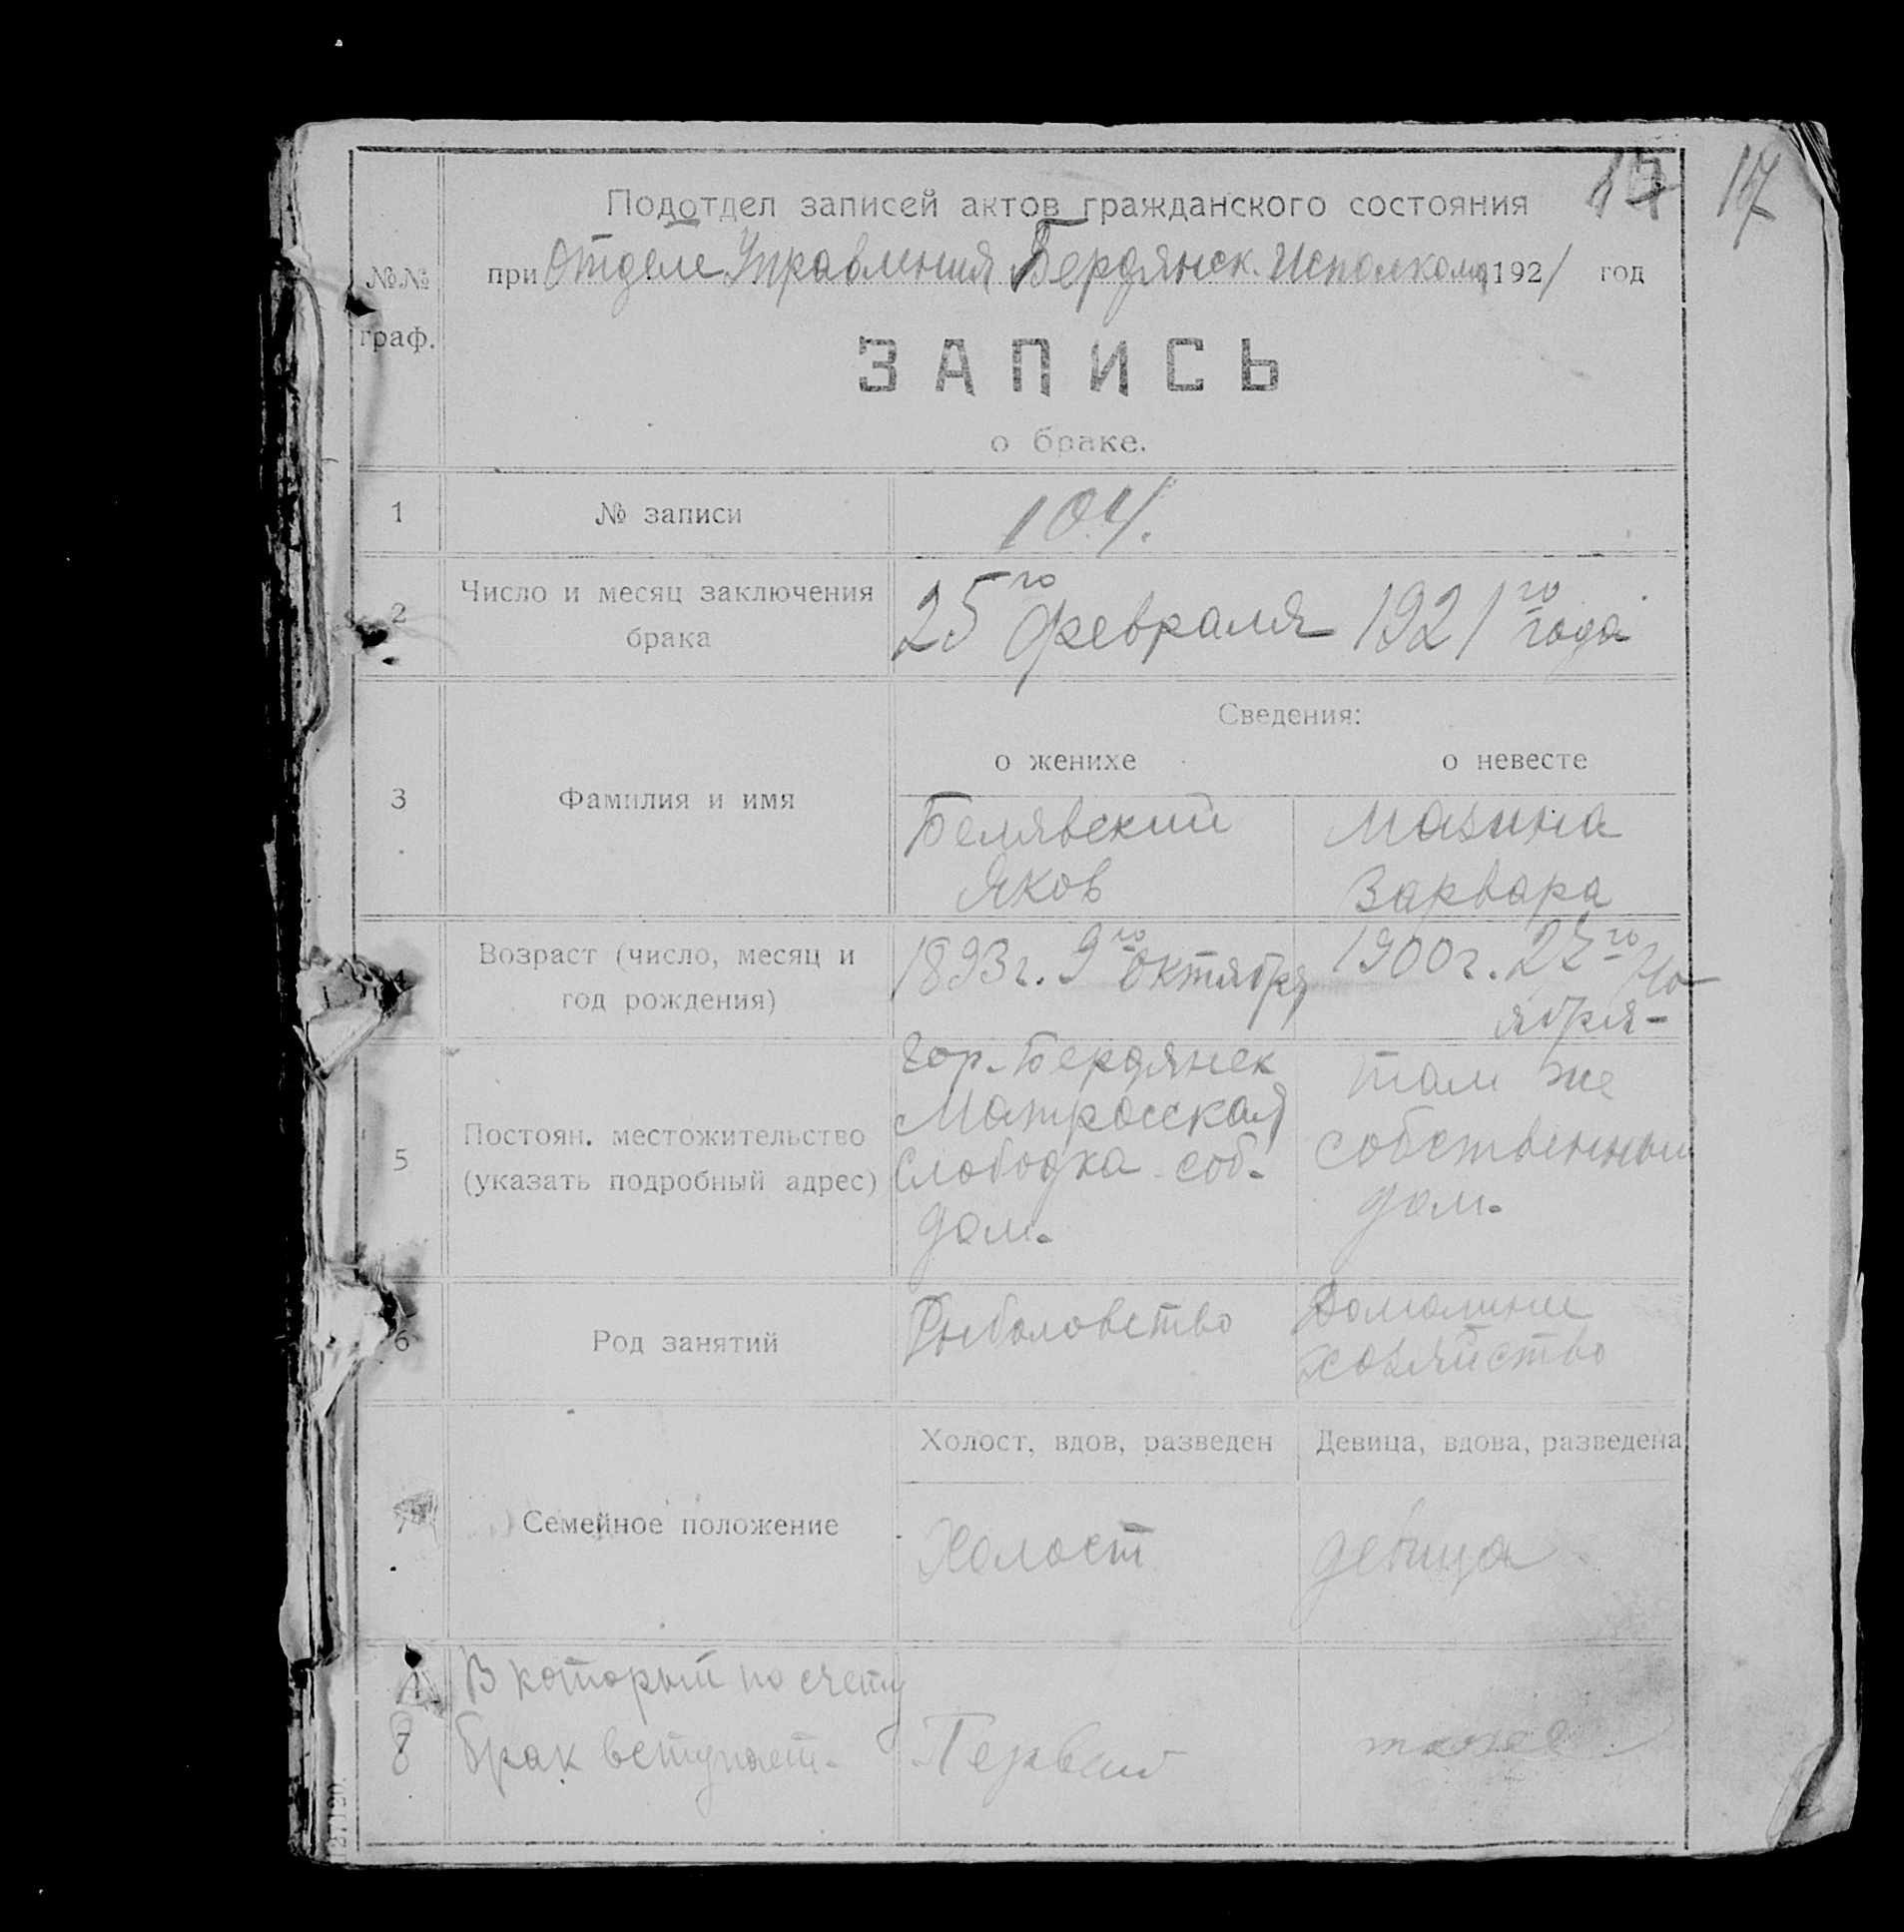 17 17
Подотдел записей актов гражданского состояния
при Отделе Управления Бердянск. Исполкома 1921 год
№№
граф.
ЗАПИСЬ
о браке.
1 № записи 104.
2 Число и месяц заключения
брака
25го февраля 1921го года
Сведения:
о женихе о невесте
3 Фамилия и имя
Белявский Мазина
Яков Варвара
4 Возраст (число, месяц и
год рождения)
1893г. 9го октября
1900г. 27го но
ября-
5 Постоян. местожительство
(указать подробный адрес)
Гор. Бердянск
Матросская
Слободка соб.
дом.
там же
собственный
дом.
6 Род занятий
Рыболовство
Домашнее
хозяйство
Холост, вдов, разведен Девица, вдова, разведена
7 Семейное положение
Холост девица
8 В который по счету
брак вступает.
Первый тоже